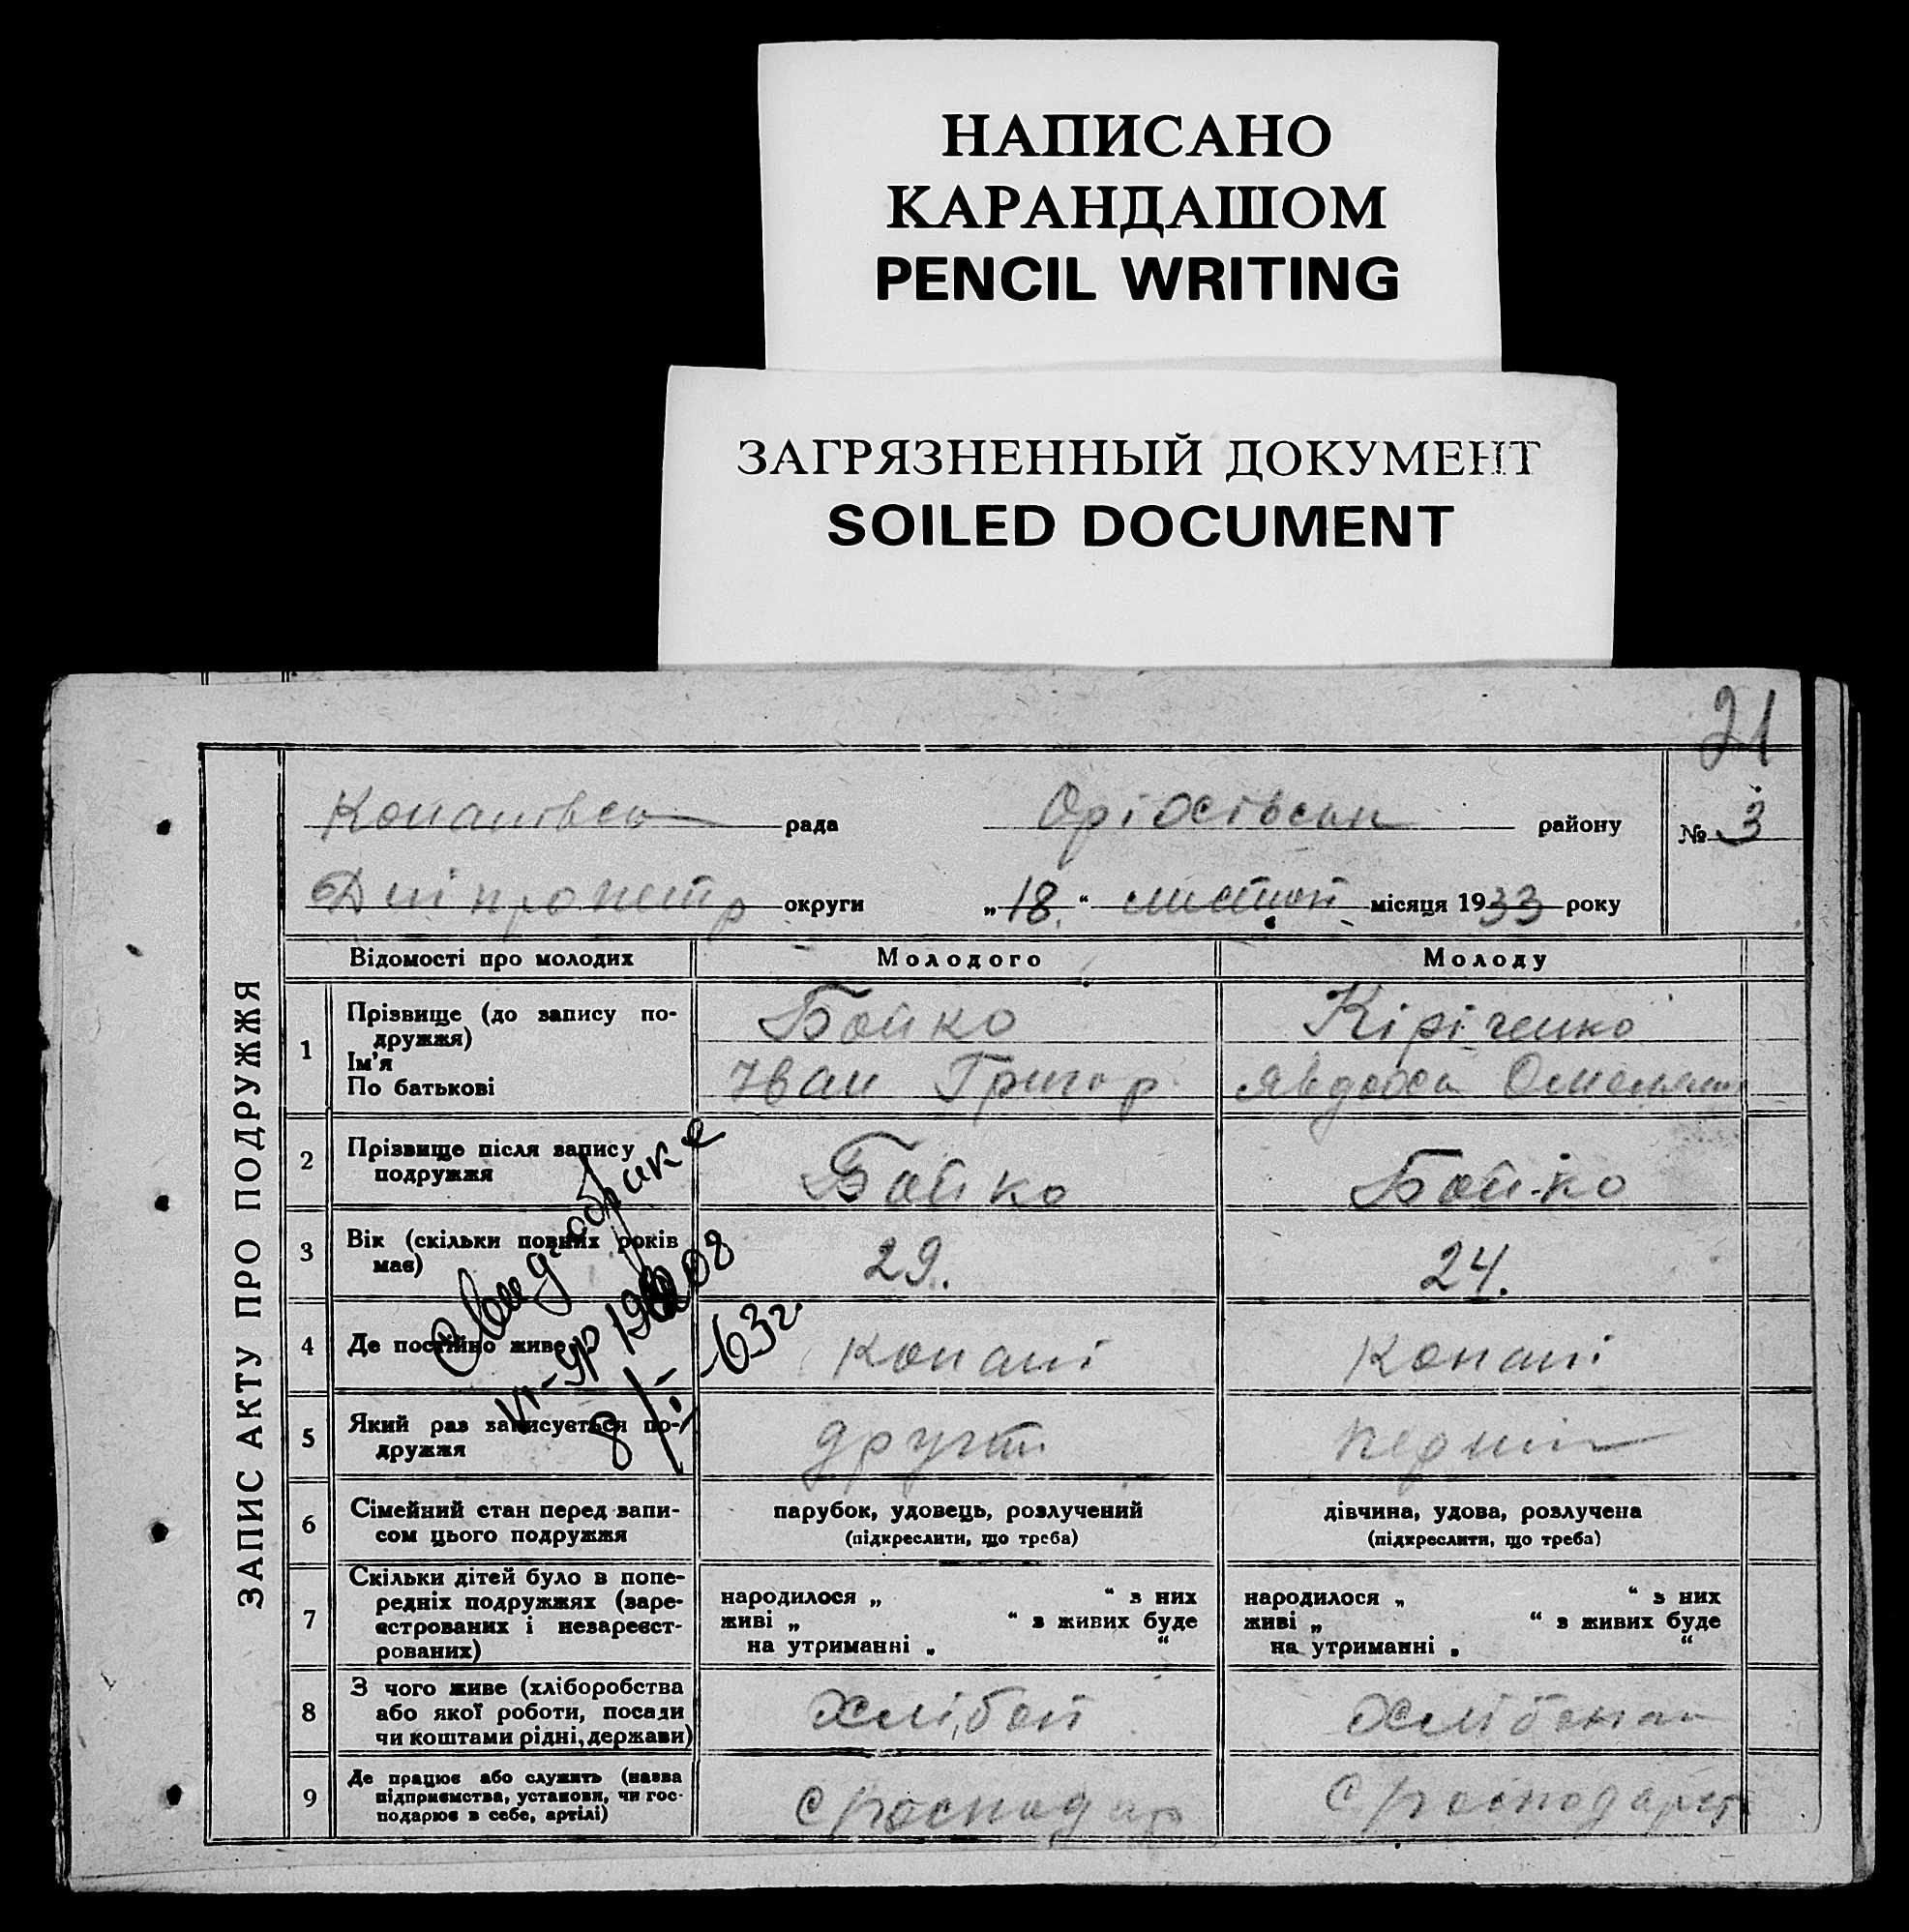 НАПИСАНО
КАРАНДАШОМ
PENCIL WRITING
ЗАГРЯЗНЕННЫЙ ДОКУМЕНТ
SOILED DOCUMENT
21
ЗАПИС АКТУ ПРО ПОДРУЖЖЯ
рада Оріхівськ району № 3
Дніпропетр округи „18“ листоп місяця 1933 року
Відомості про молодих Молодого Молоду
1 Прізвище (до запису по-
дружжя) Бойко Кіріченко
Ім'я
По батькові Іван Григор Явдоха
2 Прізвище після запису
подружжя Бойко Бойко
3 Вік (скільки повних років
має) 29. 24.
4 Де постійно живе Копані Копані
5 Який раз записується по-
дружжя
6 Сімейний стан перед запи-
сом цього подружжя
парубок, удовець, розлучений
(підкреслити, що треба)
дівчина, удова, розлучена
(підкреслити, що треба)
7 Скільки дітей було в попе-
редніх подружжях (заре-
єстрованих і незареєст-
рованих)
народилося „ “ з них
живі „ “ з живих буде
на утриманні „ “
народилося „ “ з них
живі „ “ з живих буде
на утриманні „ “
8 З чого живе (хліборобства
або якої роботи, посади
чи коштами рідні, держави)
9 Де працює або служить (назва
підприємства, установи, чи гос-
подарює в себе, артілі)
о браке
8/I-63г